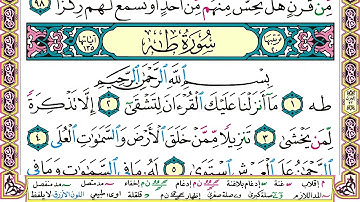 مِّن قَرْنٍ هَلْ تُحِسُّ مِنْهُم مِّنْ أَحَدٍ أَوْ تَسْمَعُ لَهُمْ رِكْزًا ٩٨
سُورَةُ طٰهٰ
آياتها ١٣٥
بِسْمِ اللَّهِ الرَّحْمَٰنِ الرَّحِيمِ
طه ١ مَا أَنزَلْنَا عَلَيْكَ الْقُرْءَانَ لِتَشْقَىٰ ٢ إِلَّا تَذْكِرَةً
لِّمَن يَخْشَىٰ ٣ تَنزِيلًا مِّمَّنْ خَلَقَ الْأَرْضَ وَالسَّمَٰوَٰتِ الْعُلَى ٤
الرَّحْمَٰنُ عَلَى الْعَرْشِ اسْتَوَىٰ ٥ لَهُ مَا فِي السَّمَٰوَٰتِ وَمَا فِي